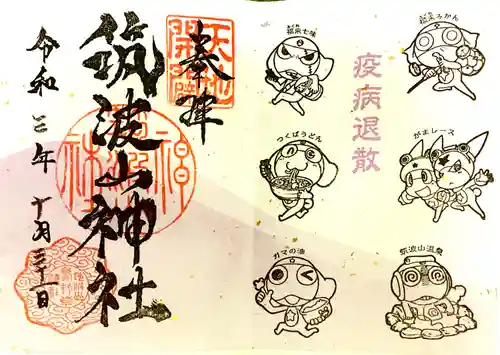 奉拝
筑波山神社
令和三年十月三十一日
天地開闢
疫病退散
福来七味
福来みかん
つくばうどん
がまレース
ガマの油
筑波山温泉